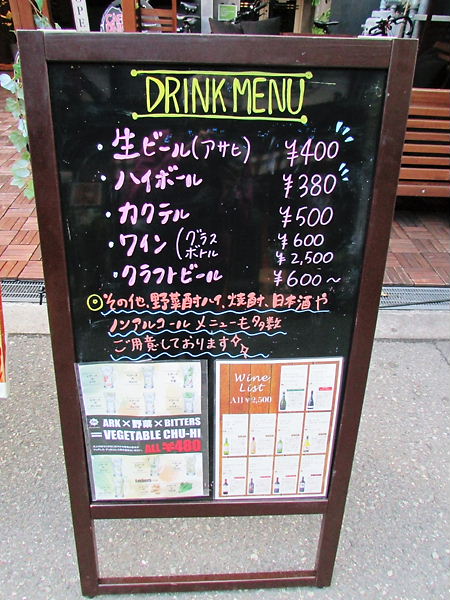 DRINK MENU
・生ビール(アサヒ) ¥400
・ハイボール ¥380
・カクテル ¥500
・ワイン(グラス ¥600
ボトル ¥2,500
・クラフトビール ¥600〜
◎その他、野菜酎ハイ、焼酎、日本酒や
ノンアルコールメニューも多数
ご用意しております☆
ARK×野菜×BITTERS
=VEGETABLE CHU-HI
ALL ¥480
Wine
List
All ¥2,500